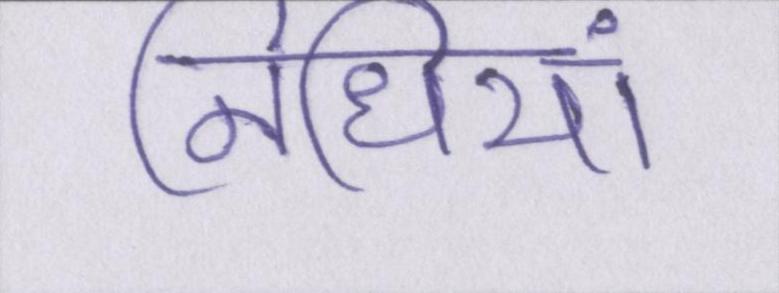 निधियां